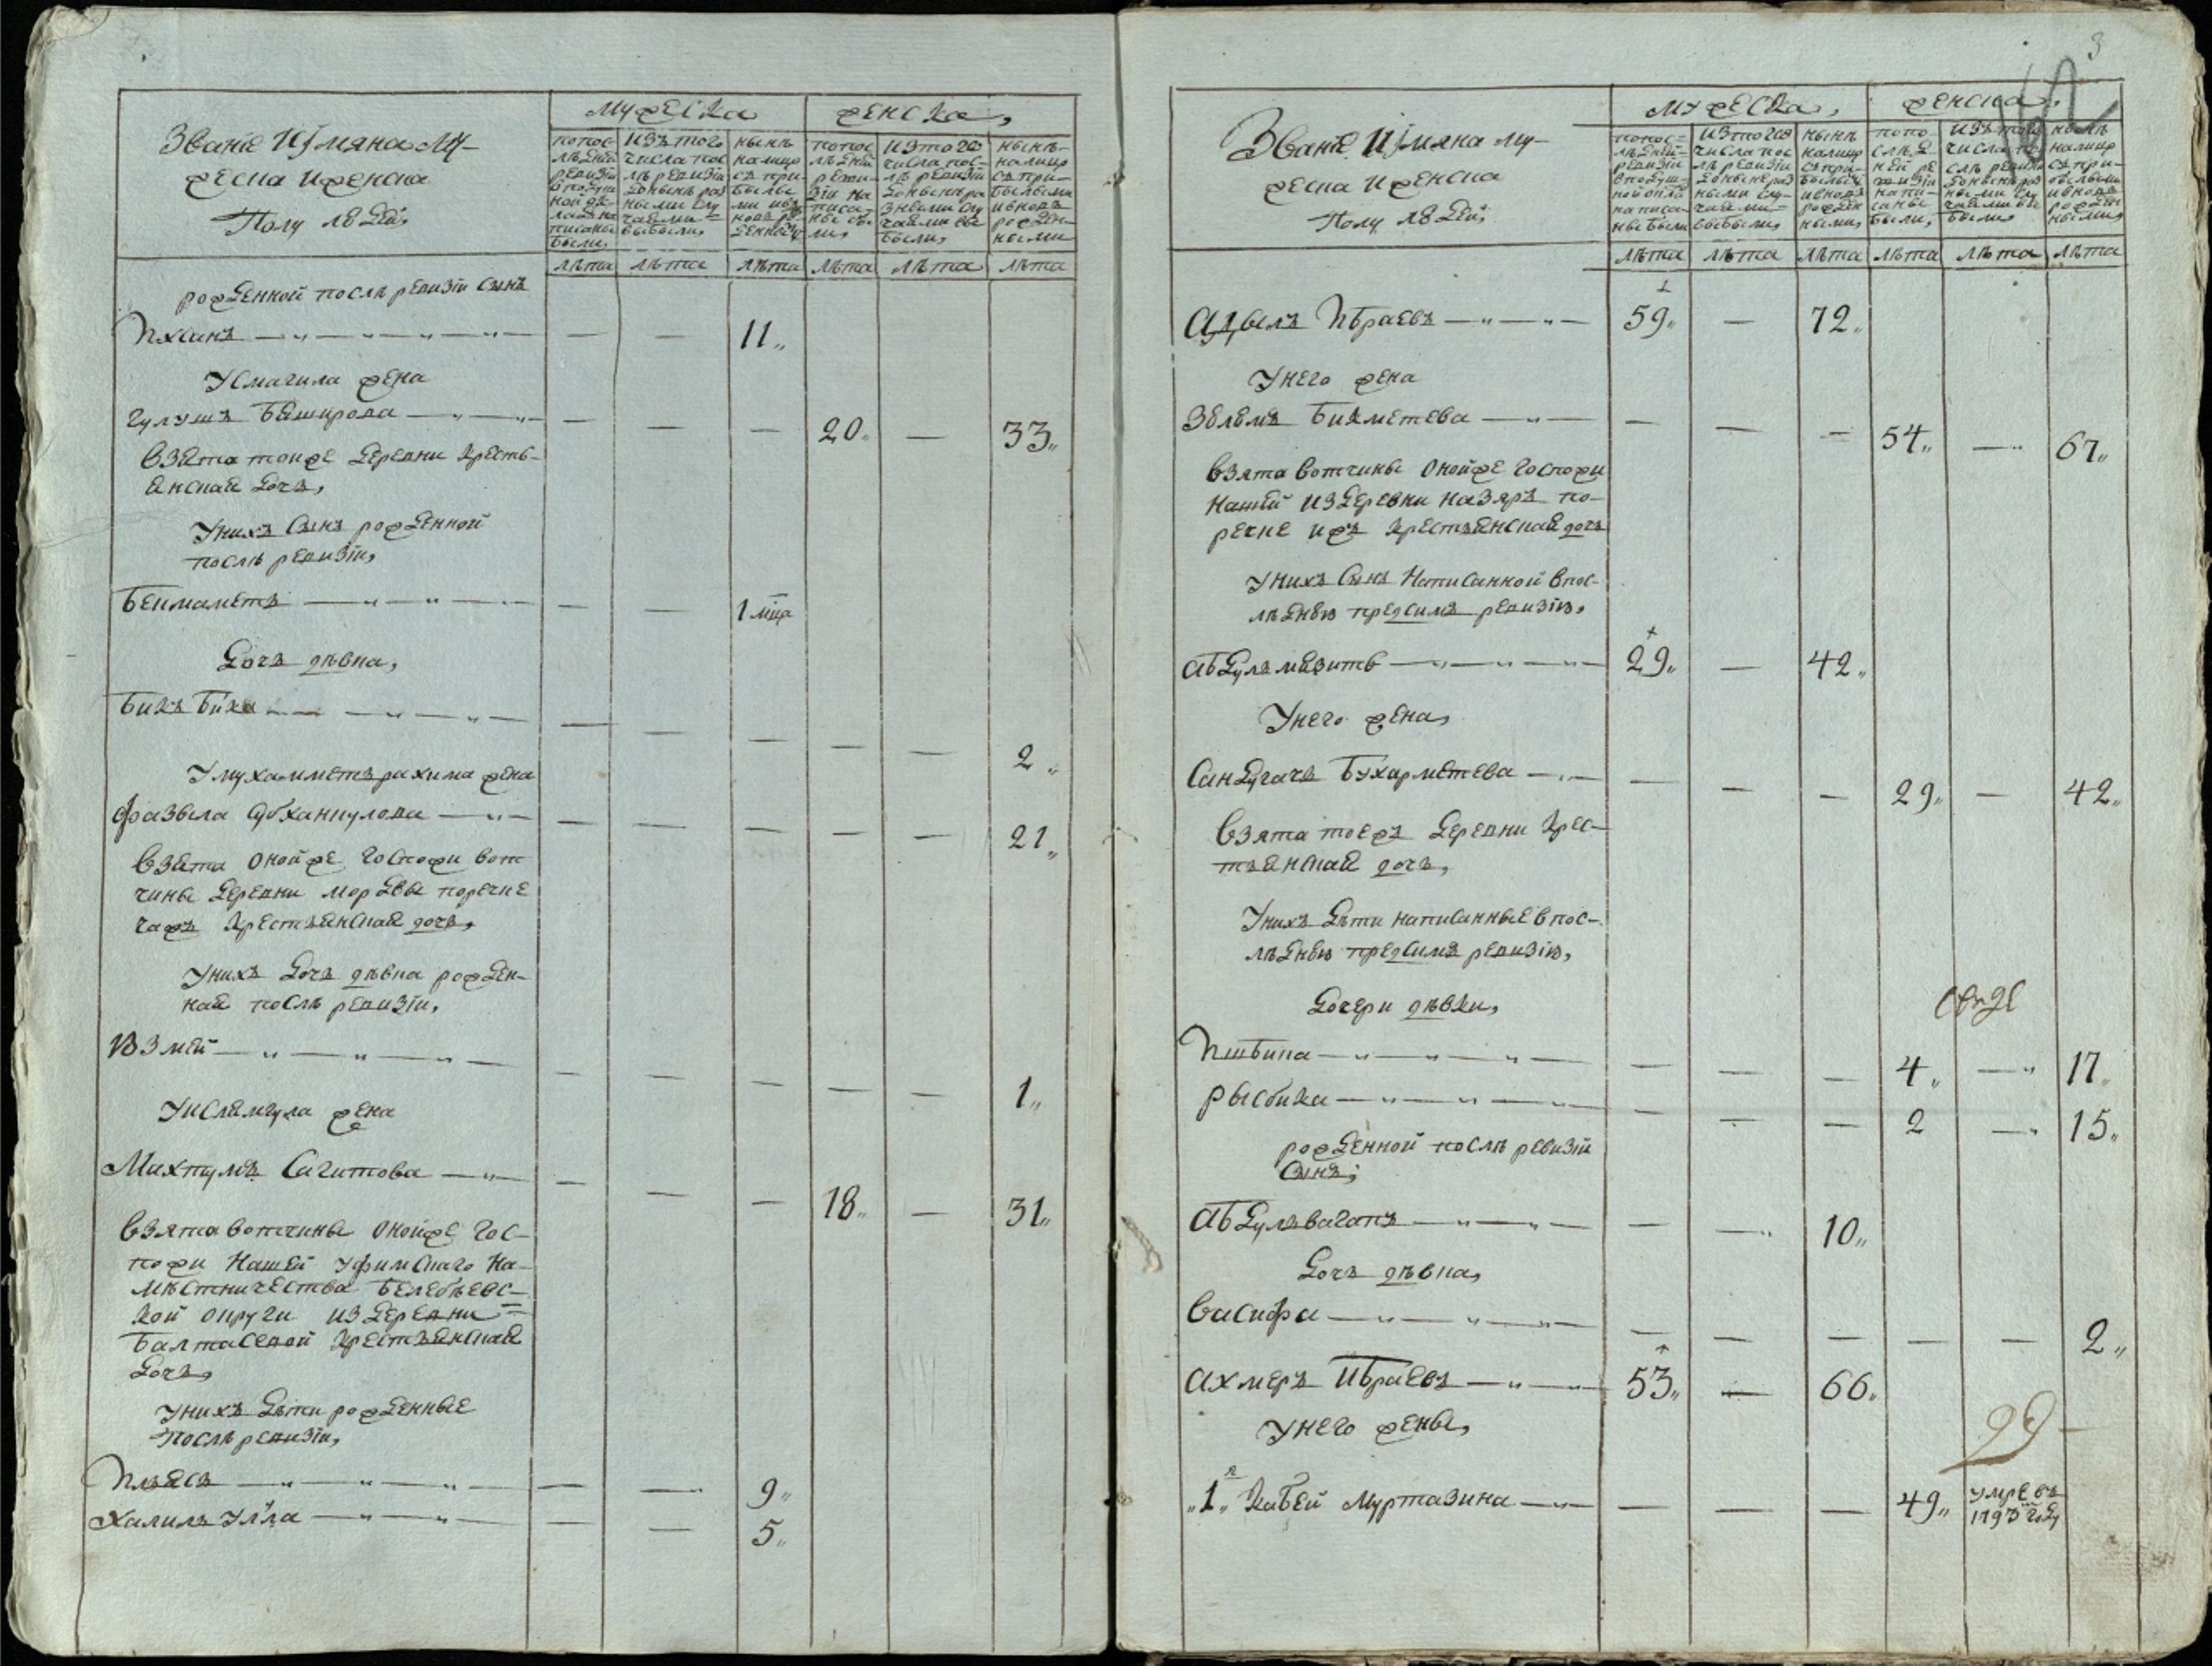 Званiе Иимяна му-
жеска иженска
Полу людей,
мужеска
женска,
попос-
лѣдней
ревизiи
вподуш-
ной ок-
ладъ на
писаны
были,
изъ того
числа пос
лѣ ревизiи
донынѣ раз
ными слу
чаями
выбыли,
нынѣ
налицо
съ при-
былы
ми ивъ
новь ро
жденной
попос
лѣдней
ревизiи на
писа-
ны бы
ли,
изтого
числа пос-
лѣ ревизiи
донынѣ ра
зными слу
чаями вы
были,
нынѣ
налицо
съ при-
былыми
ивновь
рожден-
ными
лѣта лѣта лѣта лѣта лѣта лѣта
рожденной послѣ ревизiи сынъ
Ихсанъ — — 11,,
Усмагила жена
Гулушъ Баширова — — — 20,, — 33,,
взята тоиже деревни кресть-
янская дочь,
Унихъ сынъ рожденной
послѣ ревизiи,
Бекмаметъ — — 1 мца
дочь дѣвка,
Бикъ бика — — — — — 2,,
Умухамметърахима жена
Фазыла Абханкулова — — — — — 21,,
взята оной же господи вот
чины деревни Мордвы поречке
гажъ крестьянская дочь,
Унихъ дочь дѣвка рожден-
ная послѣ ревизiи,
Юзмей — — — — — 1,,
Уислямгула жена
Махпумъ Сагитова — — — 18,, — 31,,
взята вотчины онойже гос-
пожи нашей Уфимскаго на-
мѣстничества Белебѣевс-
кой округи из деревни
Балтасевой крестьянская
дочь,
Унихъ дѣти рожденные
послѣ ревизiи,
Ильясъ — — 9,,
Халилъ улла — — 5,,
3
Званiе Иимяна му-
жеска Иженска
Полу людей,
мужеска,
женска,
попос-
лѣдней
ревизiи
вподуш-
ной окла
написа-
ны были
изтого
числа пос
лѣ ревизiи
донынѣ раз
ными слу-
чаями
выбыли,
нынѣ
налицо
съ при-
былыми
ивновь
рожден
ными,
попо
слѣд
ней ре
визiи
напи-
саны
были,
изъ того
числа по
слѣ ревизiи
донынѣ раз
ными слу
чаями вы
были,
нынѣ
налицо
съ при-
былыми
ивновь
рожден
ными,
лѣта лѣта лѣта лѣта лѣта лѣта
Адылъ Ибраевъ 59,, — 72,,
Унего жена
Зюлемъ Бикметева — — — 54,, — 67,,
взята вотчины онойже господи
нашей издеревни Назяръ по-
речке ижъ крестьянская дочь
Унихъ сынъ написанной впос-
лѣднюю предсимъ ревизiю,
Абдулъмязитъ 29,, — 42,,
Унего жена,
Сандугачь Бухарметева — — — 29,, — 42,,
взята тоежъ деревни крес-
тьянская дочь,
Унихъ дѣти написанные впос-
лѣднюю предсимъ ревизiю,
дочери дѣвки,
Ишбика — — — 4,, — 17,,
Рысбика — — — 2 — 15,,
рожденной послѣ ревизiи
сынъ,
Абдулъвагапъ — — 10,,
дочь дѣвка,
Васифа — — — — — 2,,
Ахмеръ Ибраевъ 53,, — 66,,
Унего жены,
,,1,,я Кабей Муртазина — — — 49,, умре въ
1793 году